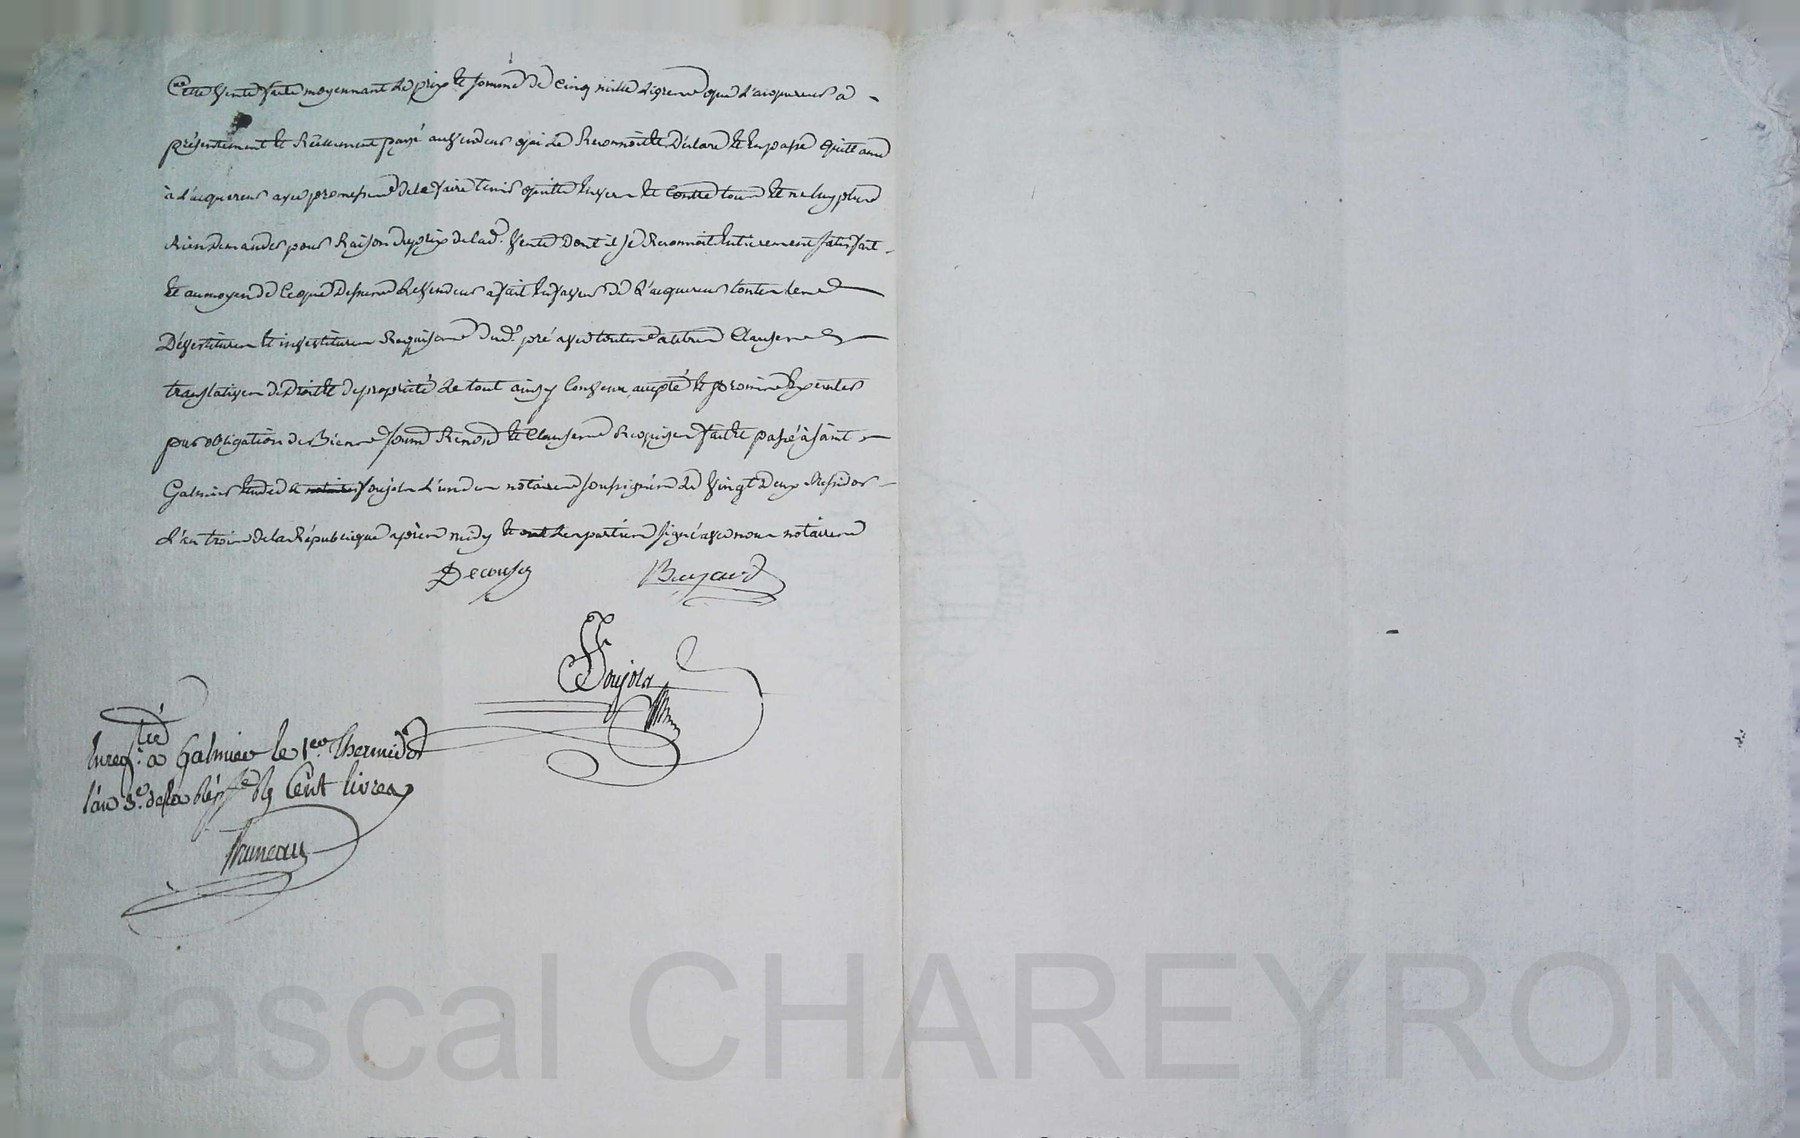 Cette vente faite moyennant le prix et somme de cinq mille livres que l'acquereur a
présentement et Réellement payé au vendeur qui le Reconnoit et Declare et en passe quittance
à l'acquereur avec promesse de le faire tenir quitte envers et contre tous et ne luy plus
Rien demander pour Raison du prix de lad.e vente Dont il se Reconnoit entierement satisfait
et au moyen de ce que Dessus le vendeur a fait en faveur de l'acquereur toutes les
Dévestitures et investitures Requises dud. pré avec toutes autres Clauses
translatives de Droits de propriété le tout ainsy convenu accepté et promis executer
par obligation de Biens soumis Renon.d et Clauses Requises fait et passé à saint
Galmier etude de notaire Poujola l'un des notaires soussignés le vingt deux Messidor
l'an trois de la République après midy et ont les parties signé avec nous notaires
Decousu Bayard
Poujola
Enreg.tré a Galmier le 1er Thermidor
l'an 3.e de la Rép.e R. Cent livres
Bruneau
Pascal CHAREYRON